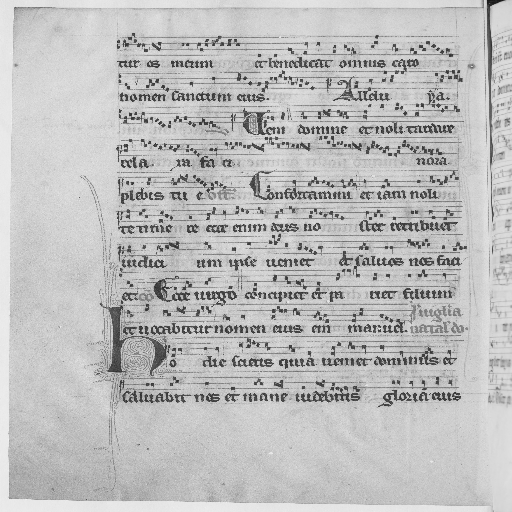 tur os meum et benedicat omnis caro
nomen sanctum eius. Alleluya.
Veni domine et noli tardare
rela fa ci nora
plebis tu e Confortamini et iam noli
te time re ecce enim deus no ster retribuet
iudici um ipse veniet et saluos nos faci
et. Ecce uirgo concipiet et pa riet filium
et uocabitur nomen eius em manuel. Juiglia
natal do
Ho die scietis quia ueniet dominus et
saluabit nos et mane uidebitis gloriam eius